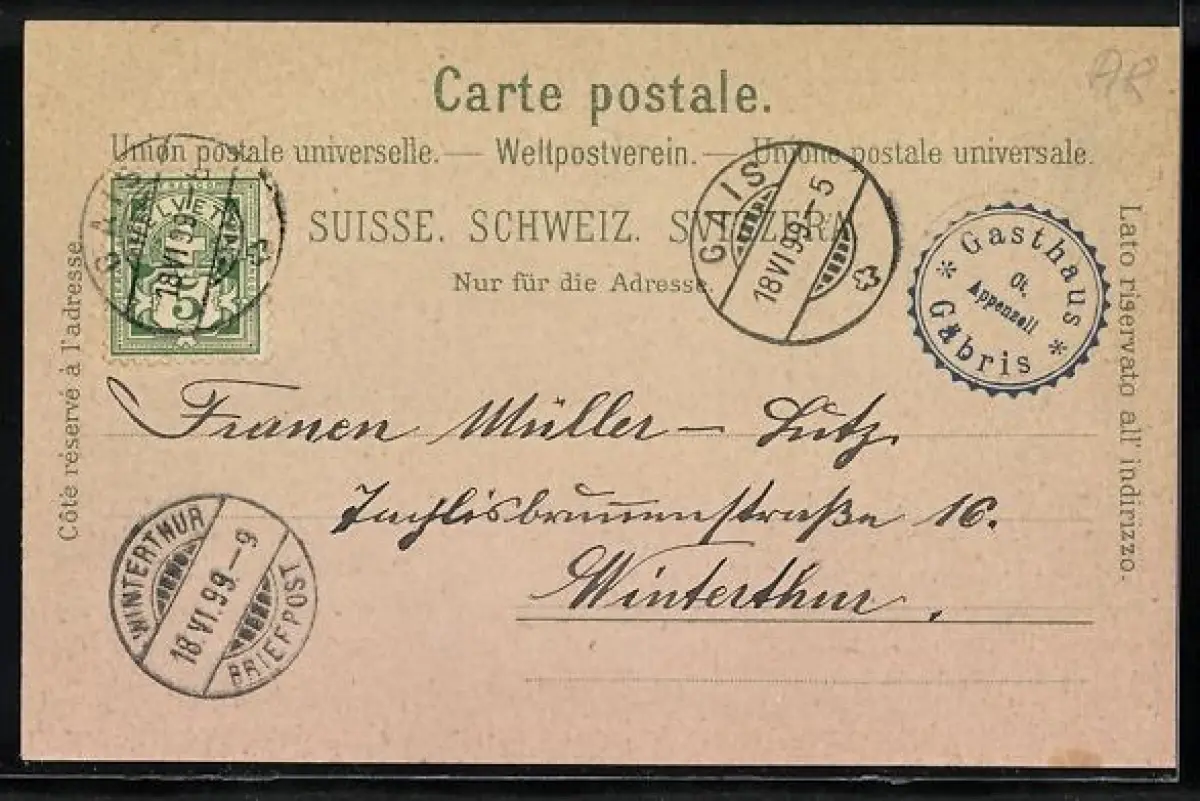 Carte postale.
AR
Union postale universelle. — Weltpostverein. — Unione postale universale.
SUISSE. SCHWEIZ. SVIZZERA
Nur für die Adresse.
Côté réservé à l'adresse.
Lato riservato all' indirizzo.
HELVETIA
5
GAIS
18.VI.99.-5
GAIS
18.VI.99.-5
Gasthaus
Ct.
Appenzell
Gäbris
Müller – Lutz.
16.
Winterthur.
WINTERTHUR
18.VI.99.-9
BRIEFPOST